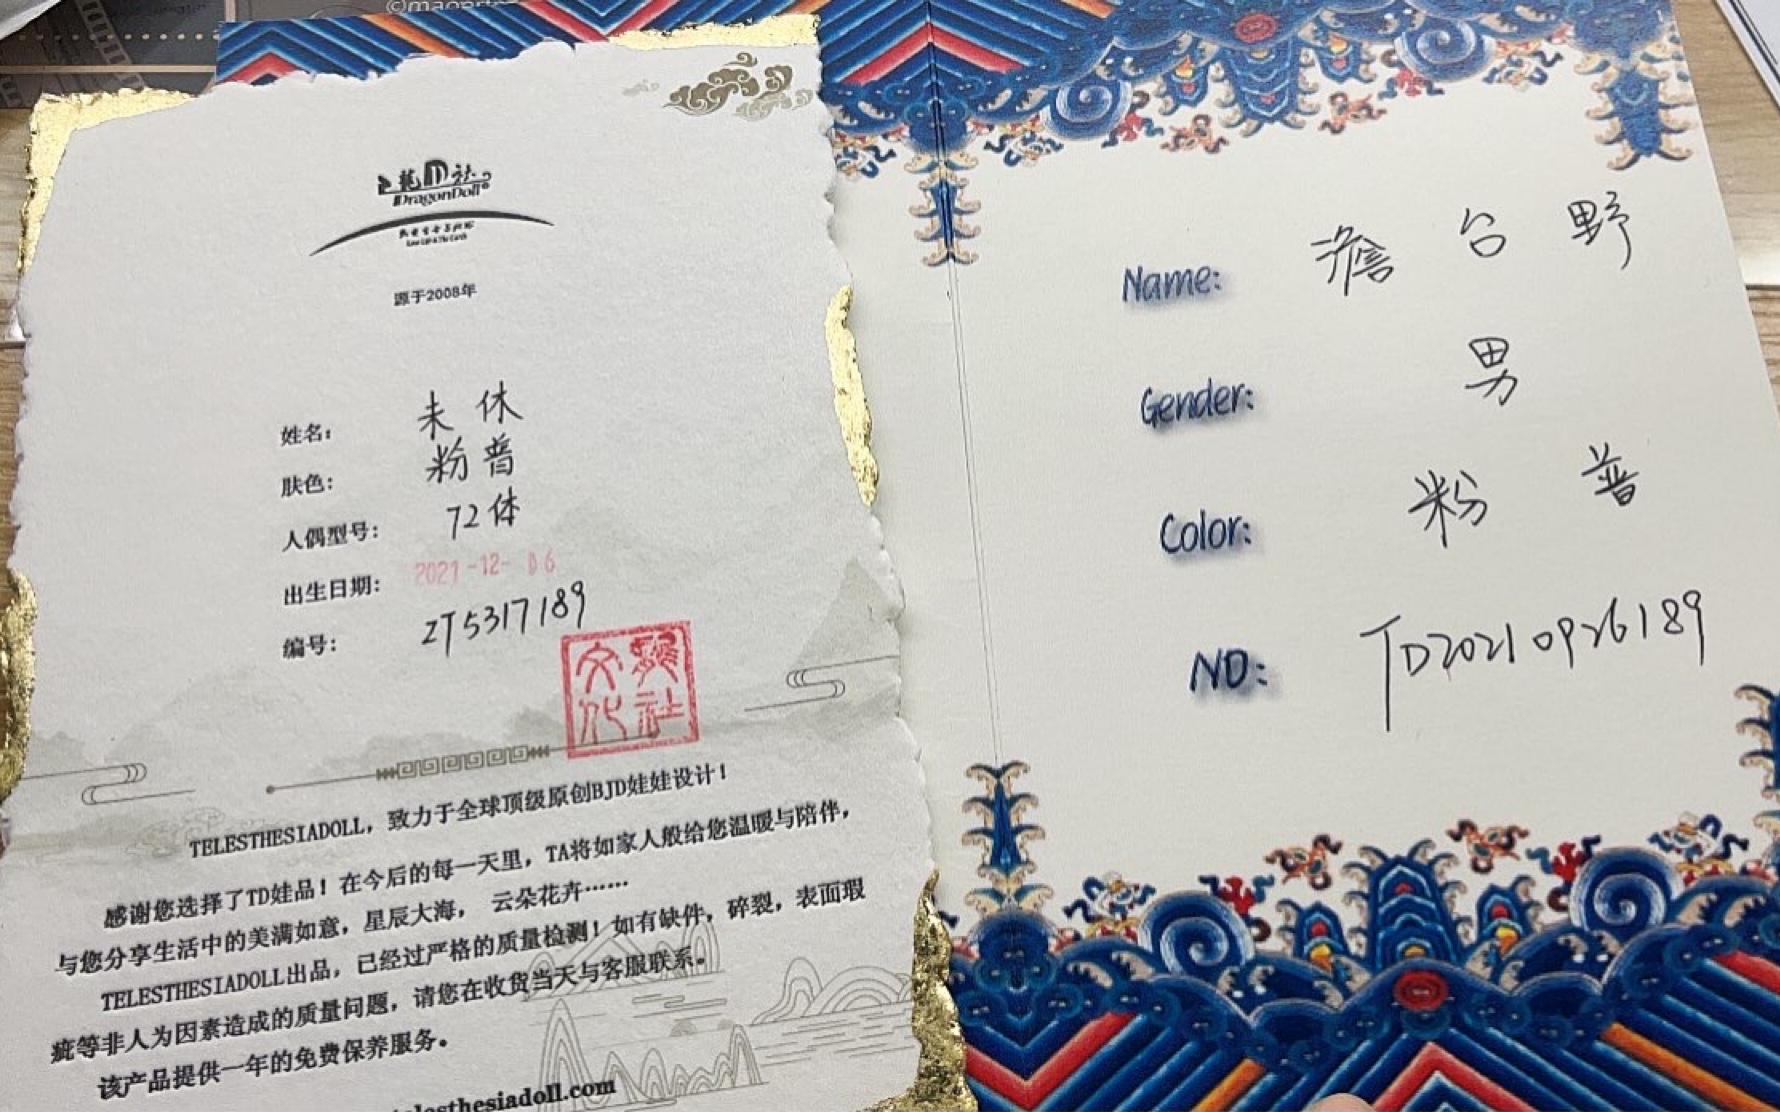 龍D社
DragonDoll
源于2008年
姓名: 未休
肤色: 粉普
人偶型号: 72体
出生日期: 2021-12-06
编号: ZT5317189
龍社文化
TELESTHESIADOLL,致力于全球顶级原创BJD娃娃设计!
感谢您选择了TD娃品!在今后的每一天里,TA将如家人般给您温暖与陪伴,
与您分享生活中的美满如意,星辰大海, 云朵花卉……
TELESTHESIADOLL出品,已经过严格的质量检测!如有缺件,碎裂,表面瑕
疵等非人为因素造成的质量问题,请您在收货当天与客服联系。
该产品提供一年的免费保养服务。
telesthesiadoll.com
Name: 澹台野
Gender: 男
Color: 粉普
NO: TD20210926189